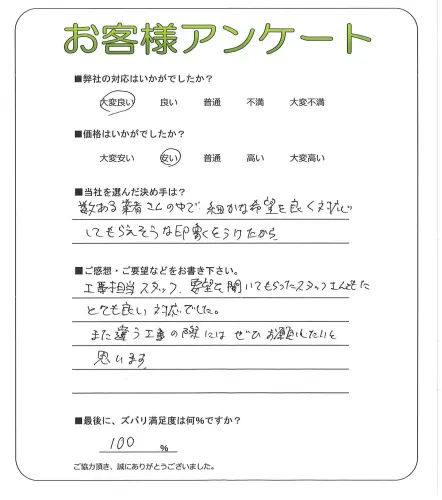 お客様アンケート
■弊社の対応はいかがでしたか？
大変良い 良い 普通 不満 大変不満
■価格はいかがでしたか？
大変安い 安い 普通 高い 大変高い
■当社を選んだ決め手は？
数ある業者さんの中で 細かな希望を良く対応
してもらえそうな印象をうけたから
■ご感想・ご要望などをお書き下さい。
工事担当スタッフ、要望を聞いてもらったスタッフさんもた
とても良い対応でした。
また違う工事の際には ぜひお願いしたいと
思います
■最後に、ズバリ満足度は何%ですか？
100 %
ご協力頂き、誠にありがとうございました。